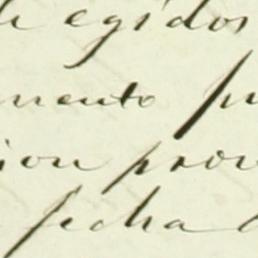 egidos
mento
ion prov
fecha